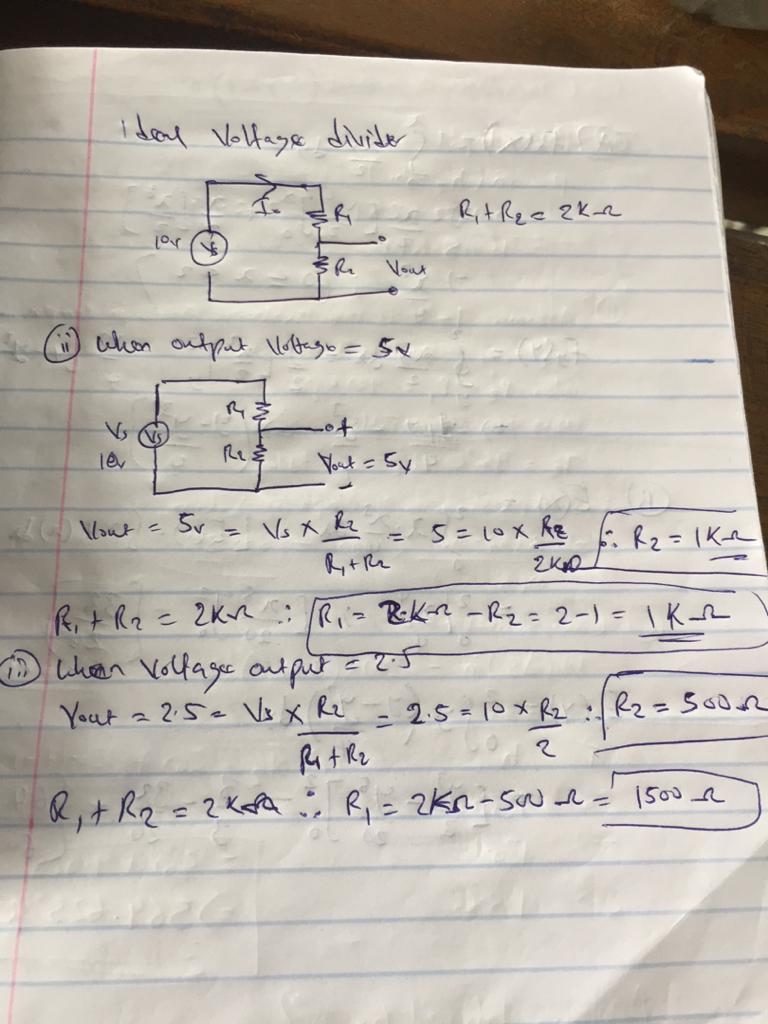 ideal Voltage divider
I₀ R₁ R₁ + R₂ = 2KΩ
10v Vs R₂ Vout
(ii) When output Voltage = 5v
R₁
Vs Vs +
10v R₂ Vout = 5v
-
Vout = 5v = Vs × R₂/(R₁+R₂) = 5 = 10 × R₂/2KΩ ∴ R₂ = 1KΩ
R₁ + R₂ = 2KΩ ∴ R₁ = 2KΩ - R₂ = 2-1 = 1KΩ
When Voltage output = 2.5
Vout = 2.5 = Vs × R₂/(R₁+R₂) = 2.5 = 10 × R₂/2 ∴ R₂ = 500Ω
R₁ + R₂ = 2KΩ ∴ R₁ = 2KΩ - 500Ω = 1500Ω